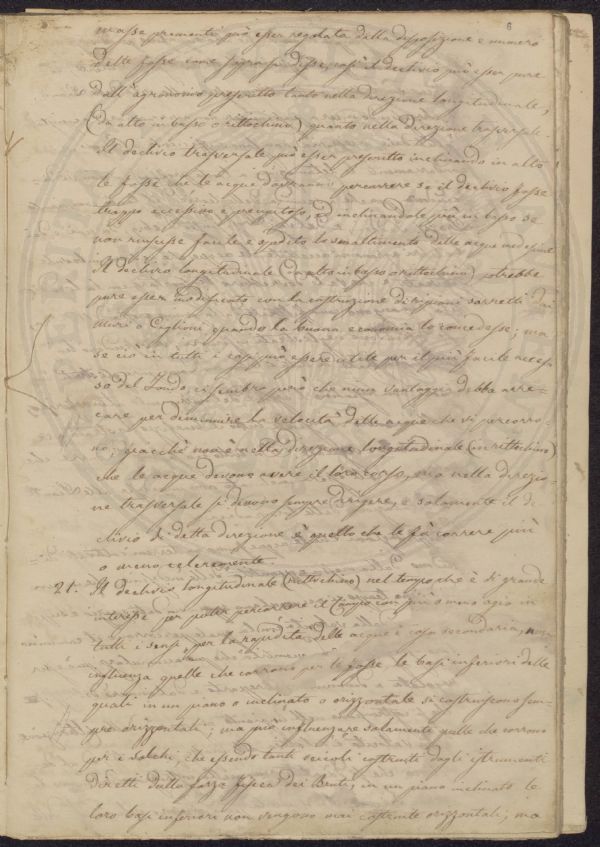 6
masse prementi può esser regolata dalla disposizione e numero
delle fosse come sopra si disse, così il declivio può esser pure
dall'agronomo prescritto tanto nella direzione longitudinale,
(da alto in basso o rittochino) quanto nella direzione trasversale.
Il declivio trasversale può esser prescritto inclinando in alto
le fosse che le acque dovranno percorrere se il declivio fosse
troppo eccessivo e precipitoso, ed inclinandole più in basso se
non riuscisse facile e spedito lo smaltimento delle acque medesime
Il declivio longitudinale (da alto in basso o rittochino) potrebbe
pure esser modificato con la costruzione di ripiani sorretti dai
muri o Ciglioni quando la buona economia lo concedesse; ma
se ciò in tutti i casi può essere utile per il più facile acces
so del Fondo ci sembra però che niun vantaggio debba arre-
care per diminuire la velocità delle acque che vi percorro-
no, giacchè non è nella direzione longitudinale (in rittochino)
che le acque devono avere il loro corso, ma nella direzio-
ne trasversale si devono sempre dirigere, e solamente il de
clivio di detta direzione è quello che le fà correre più
o meno celeremente.
21. Il declivio longitudinale (rittochino) nel tempo che è di grande
interesse per poter percorrere il Campo con più o meno agio in
tutti i sensi, per la rapidità delle acque è cosa secondaria, non
influenza quelle che corrono per le fosse le basi inferiori delle
quali in un piano o inclinato o orizzontale si costruiscono sem-
pre orizzontali; ma può influenzare solamente quelle che corrono
per i solchi, che essendo tanti veicoli costruiti dagli istrumenti
diretti dalla forza fisica dei Bruti, in un piano inclinato le
loro basi inferiori non vengono mai costruite orizzontali; ma